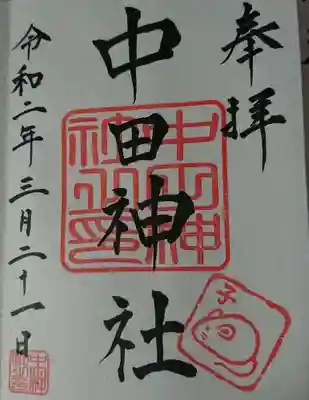 奉拝
中田神社
中田神社之印
令和二年三月二十一日
子